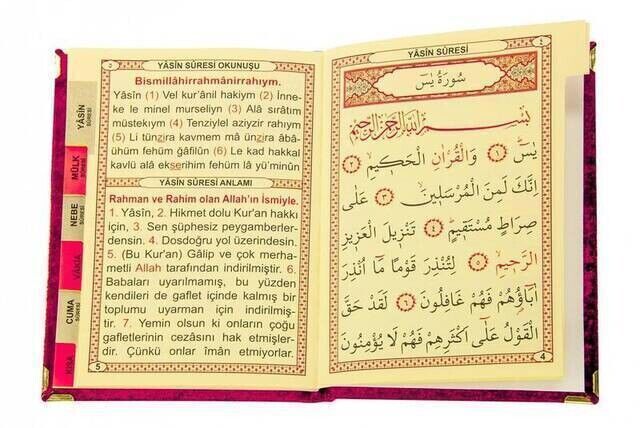 YÂSİN SÛRESİ OKUNUŞU
Bismillâhirrahmânirrahıym.
Yâsîn (1) Vel kur'ânil hakiym (2) İnne-
ke le minel murseliyn (3) Alâ sırâtım
müstekıym (4) Tenziylel aziyzir rahıym
(5) Li tünzira kavmem mâ ünzira âbâ-
ühüm fehüm ğâfilûn (6) Le kad hakkal
kavlü alâ ekserihim fehüm lâ yü'minûn
YÂSİN SÛRESİ ANLAMI
Rahman ve Rahim olan Allah'ın İsmiyle.
1. Yâsîn, 2. Hikmet dolu Kur'an hakkı
için, 3. Sen şüphesiz peygamberler-
densin. 4. Dosdoğru yol üzerindesin.
5. (Bu Kur'an) Gâlip ve çok merha-
metli Allah tarafından indirilmiştir. 6.
Babaları uyarılmamış, bu yüzden
kendileri de gaflet içinde kalmış bir
toplumu uyarman için indirilmiş-
tir. 7. Yemin olsun ki onların çoğu
gafletlerinin cezasını hak etmişler-
dir. Çünkü onlar îmân etmiyorlar.
5
YÂSİN SÛRESİ
MÜLK SÛRESİ
NEBE SÛRESİ
VÂKIA
CUMA SÛRESİ
KISA
YÂSİN SÛRESİ
٤
سورة يس
بسم الله الرحمن الرحيم
يٰسٓ ﴿١﴾ وَالْقُرْاٰنِ الْحَك۪يمِ ﴿٢﴾
اِنَّكَ لَمِنَ الْمُرْسَل۪ينَ ﴿٣﴾ عَلٰى
صِرَاطٍ مُسْتَق۪يمٍ ﴿٤﴾ تَنْز۪يلَ الْعَز۪يزِ
الرَّح۪يمِ ﴿٥﴾ لِتُنْذِرَ قَوْمًا مَٓا اُنْذِرَ
اٰبَٓاؤُ۬هُمْ فَهُمْ غَافِلُونَ ﴿٦﴾ لَقَدْ حَقَّ
الْقَوْلُ عَلٰٓى اَكْثَرِهِمْ فَهُمْ لَا يُؤْمِنُونَ
4